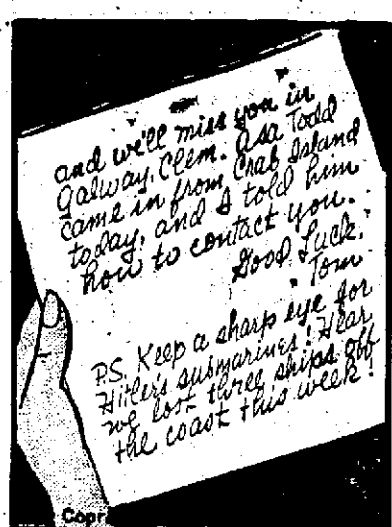 and we'll miss you in
Galway, Clem. Asa Todd
came in from Crab Island
today, and I told him
how to contact you.
Good Luck.
Tom
P.S. Keep a sharp eye for
Hitler's submarines! Hear
we lost three ships off
the coast this week!
Copr